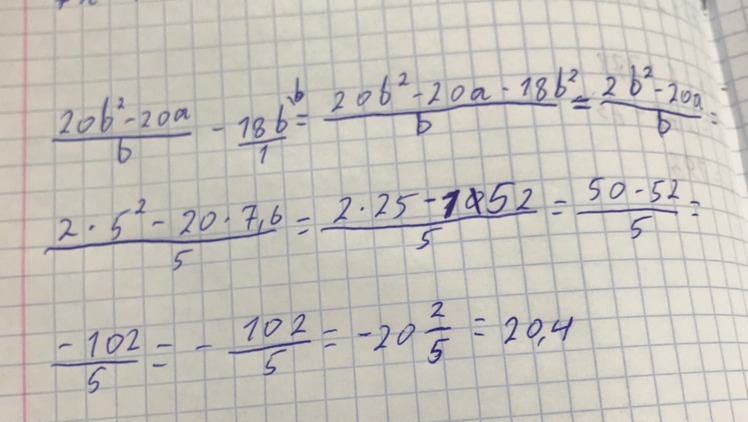 (20b² - 20a)/b - 18b/1 \b = (20b² - 20a - 18b²)/b = (2b² - 20a)/b =
(2 · 5² - 20 · 7,6)/5 = (2 · 25 - 152)/5 = (50 - 52)/5 =
(-102)/5 = - 102/5 = -20 2/5 = 20,4